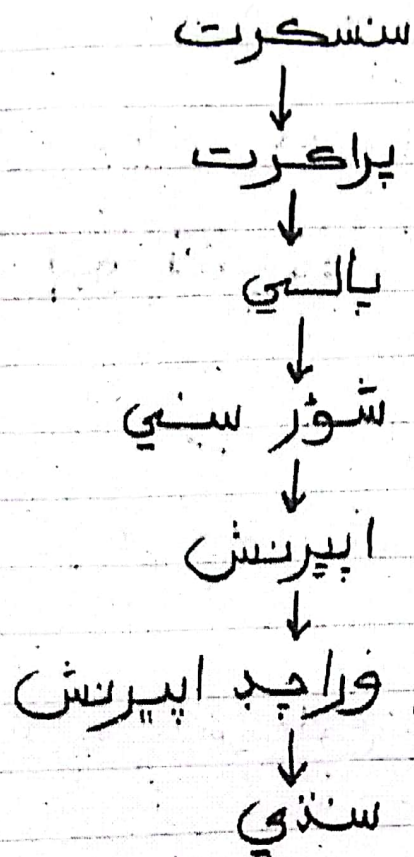 سنسڪرت
↓
پراڪرت
↓
پالي
↓
شؤر سني
↓
اپيرنش
↓
وراچڊ اپيرنش
↓
سنڌي